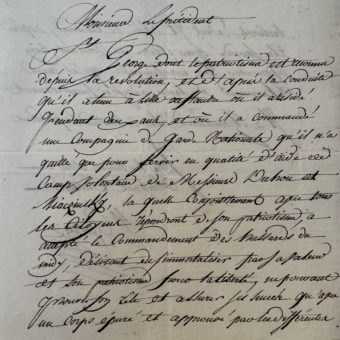 Monsieur le président
St George dont le patriotisme est reconnu
depuis la revolution, et d'après la conduite
qu'il a tenu à Lille en flandre où il a résidé
pendant deux ans, et où il a commandé
une Compagnie de Garde Nationale qu'il n'a
quitté que pour servir en qualité d'aide de
Camp volontaire de Messieurs Duhou et
Miaczinsky, la quelle Conjointement avec tous
les Citoyens répondront de son patriotisme, a
accepté le Commandement des hussards du
midy, désirant s'immortaliser par sa valeur
et son patriotisme sous l'atteinte, ne pouvant
prouver son zèle et assurer ses succès qu'avec
un corps épuré et approuvé par les différentes